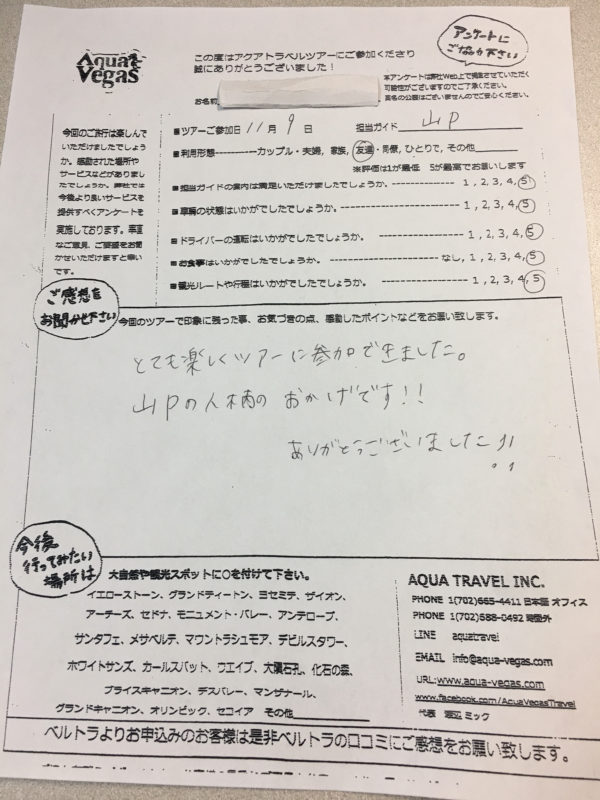 Aqua Vegas
この度はアクアトラベルツアーにご参加くださり
誠にありがとうございました！
アンケートに
ご協力下さい
本アンケートは弊社Web上で掲載させていただく
可能性がございますのでご了承ください。
お名前
実名の公開はございませんのでご安心ください。
今回のご旅行は楽しんで
いただけましたでしょう
か。感動された場所や
サービスなどがありまし
たでしょうか。弊社では
今後より良いサービスを
提供すべくアンケートを
実施しております。率直
なご意見、ご要望をお聞
かせいただけますと幸い
です。
■ツアーご参加日 11月 9日 担当ガイド 山P
■利用形態----------カップル・夫婦, 家族, 友達・同僚, ひとりで, その他
※評価は1が最低 5が最高でお願いします
■担当ガイドの案内は満足いただけましたでしょうか。---------- 1, 2, 3, 4, 5
■車輌の状態はいかがでしたでしょうか。---------- 1, 2, 3, 4, 5
■ドライバーの運転はいかがでしたでしょうか。---------- 1, 2, 3, 4, 5
■お食事はいかがでしたでしょうか。---------- なし, 1, 2, 3, 4, 5
■観光ルートや行程はいかがでしたでしょうか。---------- 1, 2, 3, 4, 5
ご感想を
お聞かせ下さい
今回のツアーで印象に残った事、お気づきの点、感動したポイントなどをお願い致します。
とても楽しくツアーに参加できました。
山Pの人柄の おかげです！！
ありがとうございました!!
今後
行ってみたい
場所は
大自然や観光スポットに○を付けて下さい。
イエローストーン、グランドティートン、ヨセミテ、ザイオン、
アーチーズ、セドナ、モニュメント・バレー、アンテロープ、
サンタフェ、メサベルデ、マウントラシュモア、デビルスタワー、
ホワイトサンズ、カールスバット、ウエイブ、大隕石孔、化石の森、
ブライスキャニオン、デスバレー、マンザナール、
グランドキャニオン、オリンピック、セコイア その他
AQUA TRAVEL INC.
PHONE 1(702)665-4411 日本語 オフィス
PHONE 1(702)688-0492 時間外
LINE aquatravel
EMAIL info@aqua-vegas.com
URL:www.aqua-vegas.com
www.facebook.com/AquaVegasTravel
代表 渡辺 ミック
ベルトラよりお申込みのお客様は是非ベルトラの口コミにご感想をお願い致します。